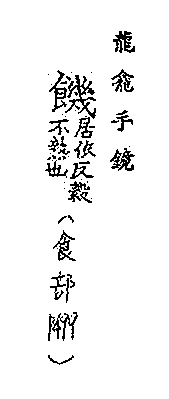 龍龕手鏡
饑居依反穀不熟也（食部𨳝）